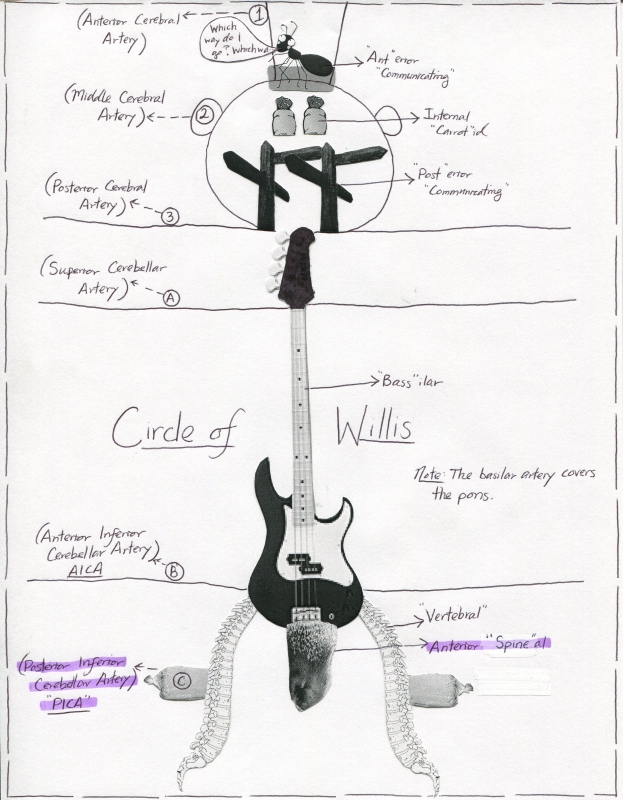 (Anterior Cerebral
Artery)
1
Which
way do I
go? Which wa
"Ant"erior
"Communicating"
(Middle Cerebral
Artery)
2
Internal
"Carrot"id
(Posterior Cerebral
Artery)
3
"Post"erior
"Communicating"
(Superior Cerebellar
Artery)
A
"Bass"ilar
Circle of Willis
Note: The basilar artery covers
the pons.
(Anterior Inferior
Cerebellar Artery)
AICA
B
"Vertebral"
Anterior "Spine"al
(Posterior Inferior
Cerebellar Artery)
"PICA"
C